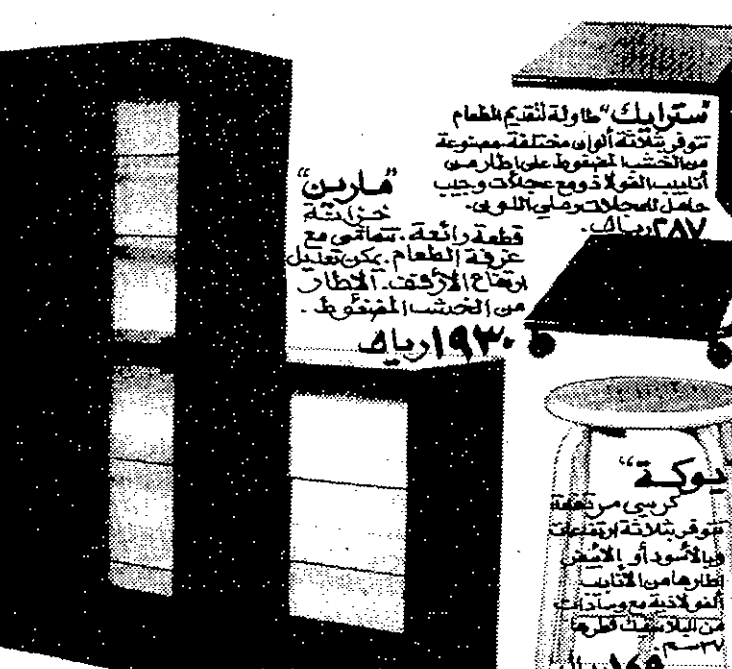 "سترايك" طاولة لتقديم الطعام
تتوفر بثلاثة ألوان مختلفة. مصنوعة
من الخشب المضغوط على إطار من
أنابيب الفولاذ ومع عجلات وجيب
حامل للمجلات رملي اللون.
٣٨٧ ريال.
"مارين"
خزانة
قطعة رائعة. تتماشى مع
غرفة الطعام. يمكن تعديل
ارتفاع الأرفف. الإطار
من الخشب المضغوط.
١٩٣٠ ريال
"يوكة"
كرسي مرتفعة
تتوفر بثلاثة ارتفاعات
وبالأسود أو الأبيض
إطارها من الأنابيب
الفولاذية مع وسادات
من البلاستيك قطرها
٣٧ سم
ريال